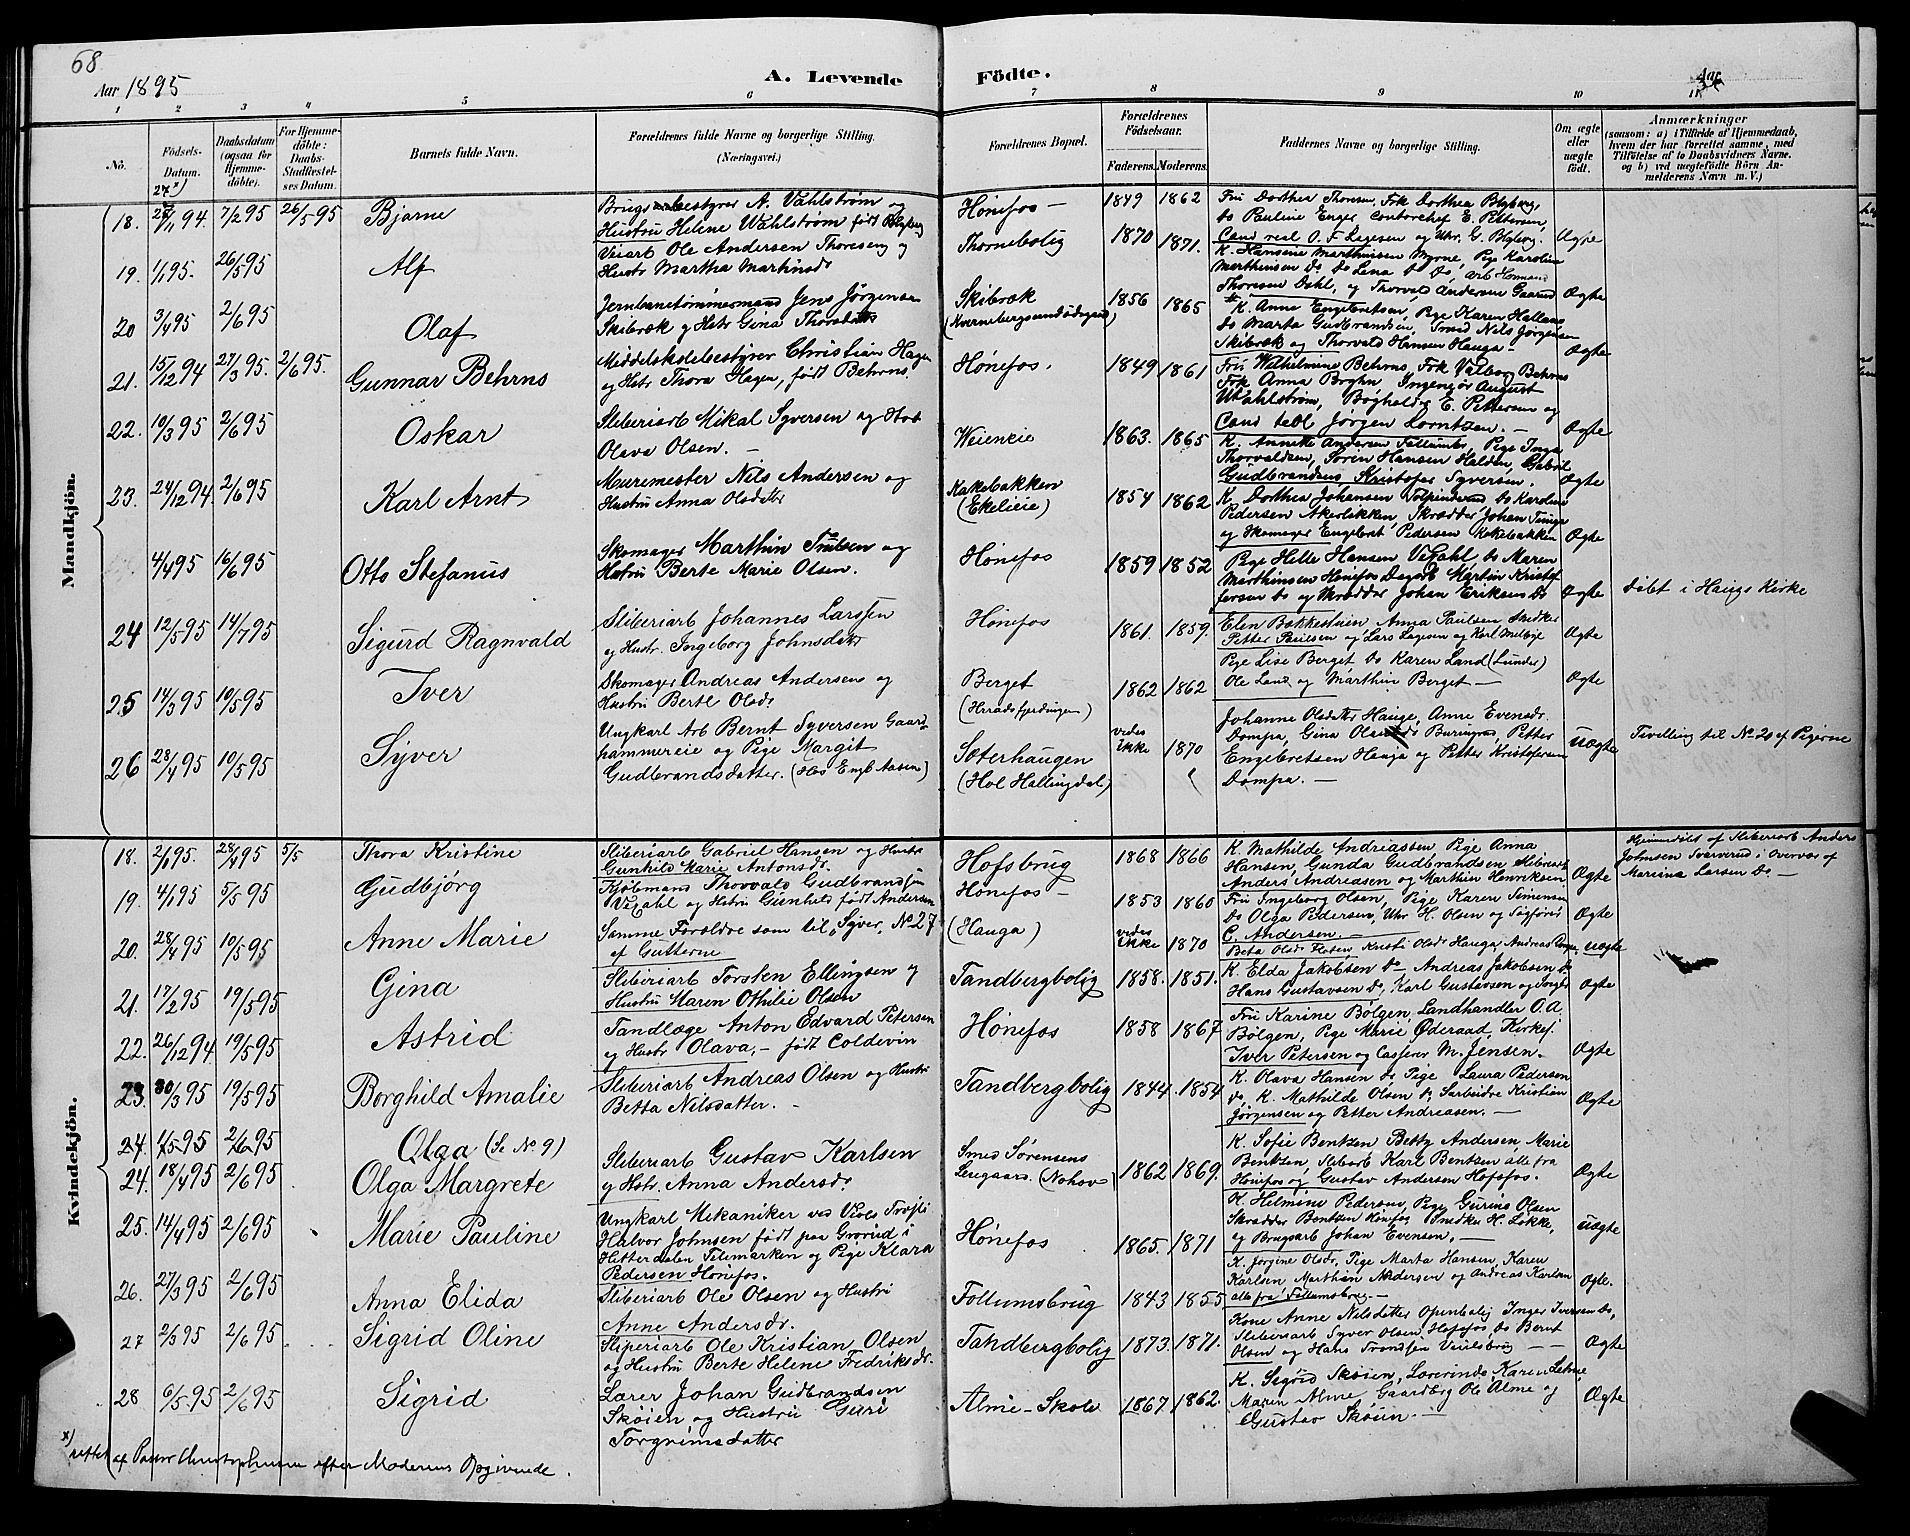 68
Aar 1895
A. Levende Födte.
Aar
1 2 3 4 5 6 7 8 9 10 11
No.
Födsels-Datum.
Daabsdatum (ogsaa for Hjemme-döbte).
For Hjemme-döbte: Daabs-Stadfæstel-ses Datum.
Barnets fulde Navn.
Forældrenes fulde Navne og borgerlige Stilling.
(Næringsvei.)
Forældrenes Bopæl.
Forældrenes Födselsaar.
Faderens. Moderens.
Faddernes Navne og borgerlige Stilling.
Om ægte eller uægte födt.
Anmærkninger
(saasom: a) i Tilfælde af Hjemmedaab,
hvem der har forrettet samme, med
Tilföielse af to Daabsvidners Navne.
og b) ved uægtefödte Börn An-
melderens Navn m. V.)
Mandkjön.
27 x)
18. 7/2 95 26/5 95 Bjarne
A. Vahlström og
Hustru Helene Wahlström født Blyberg
Hönefos — 1849 1862
Fru Dorthea Thoresen, Frk Dorthea Blyberg,
do Pauline Enger, Contorchef E. Pettersen,
Cand real O. F. Lagesen og Uhr. G. Blyberg. Ægte
19. 1/1 95. 26/5 95 Alf
Veiarb Ole Andersen Thoreseng og
Hustr Martha Martinsdr
Thornebolig 1870 1871.
K. Hansine Marthinissen Myrne, Pige Karoline
Marthinsen do do Lena do do, arb Herman
Thoresen Dahl, og Thorvald Andersen Gaarud Ægte
20 3/4 95 2/6 95 Olaf
Jernbanetömmermand Jens Jörgensen
Skibræk og Hstr Gina Thorsdatter
Skibræk 1856 1865
K. Anne Engebretsen, Pige Karen Hallens
do Marta Gudbrandsen, Smed Nils Jörgensen
Skibræk og Thorvald Hansen Hauga — Ægte
21. 15/12 94 27/3 95. 2/6 95. Gunnar Behrns
Middelskolebestyrer Christian Hagen
og Hstr Thora Hagen, født Behrns.
Hönefos. 1849 1861
Fru Wilhelmine Behrns, Frk Valborg Behrns
Frk Anna Broghn Ingeniör August
Wahlström, Bogholder E. Pettersen og
Cand teol Jörgen Lorntzen. — Ægte
22. 10/3 95 2/6 95 Oskar
Sliberiarb Mikal Syversen og Hstr
Olava Olsen. —
Weieneie 1863. 1865
K. Annette Andersen Follumbr, Pige Inga
Thorvaldsen, Sören Hansen Halden, Gabriel
Gudbrandsens Kristofer Syversen. Ægte
23. 24/12 94. 2/6 95 Karl Arnt
Muremester Nils Andersen og
Hustru Anna Olsdatter
Kakebakken
(Ekelieie) 1854 1862
K. Dorthea Johansen do Karoline
Pedersen Akerlökken, Skrædder Johan
og Skomager Engebret Pedersen Kakebakken Ægte
4/4 95 16/6 95 Otto Stefanus
Skomager Marthin og
Hustru Berte Marie Olsen.
Hönefos 1859 1852
Pige Helle Hansen Vexahl, do Maren
Marthinsen Hönefos Dagarb Martin Kristof
fersen do og Skrædder Johan Eriksen do Ægte
döbt i Haugs Kirke
24 12/5 95 14/7 95 Sigurd Ragnvald
Sliberiarb Johannes Larssen
og Hustr. Ingeborg Johnsdatr
Hönefos 1861. 1859.
Elen Bakkestuen, Anna Paulsen Snedker
Petter Paulsen og Lars Lagesen og Karl Melbye Ægte
25 14/3 95 10/5 95 Iver
Skomager Andreas Andersen og
Hustru Berte Olsdr
Berget
(Hradsfjerdingen) 1862 1862
Pige Lise Berget do Karen Land (Lunder)
Ole Land og Marthin Berget — Ægte
26 28/4 95 10/5 95 Syver
Ungkarl Arb Bernt Syversen Gaard-
hammereie og Pige Margit
Gudbrandsdatter. (Hos Engb Aasen)
Soterhaugen
(Hol Hallingdal)
vedes
ikke 1870
Johanne Olsdatter Hauge, Anne Evensdr.
Dompa, Gina Olsen Buringrud, Petter
Engebretsen Hauga og Petter Kristofersen
Dompa. — uægte
Tvilling til No 20 af Pigerne
Kvindekjön.
18. 2/1 95. 28/4 95 5/5 Thora Kristine
Sliberiarb Gabriel Hansen og Hustr
Gunhild Marie Antonsdr.
Hofsbrug 1868 1866
K. Mathilde Andreassen, Pige Anna
Hansen, Gunda Gudbrandsen Sliberiarb
Anders Andreasen og Marthin Henriksen Ægte
Hjemmdöbt af Sliberiarb Anders
Johnsen Svarverud i Overvær af
Marina Larsen do —
19. 4/1 95 5/5 95 Gudbjörg
Kjöbmand Thorvald Gudbrandsen
Vexahl og Hstru Gunhild født Andersen
Hönefos — 1853 1860
Fru Ingeborg Olsen, Pige Karen Simensen
do Olga Pedersen, Uhr H. Olsen og Sagförer
C. Andersen. — Ægte
20. 28/4 95 10/5 95 Anne Marie
Samme Foreldre som til „Syver, No 27
af Gutterne
(Hauga) vedes
ikke 1870
Beta Olsdr Flesen, Kristi Olsdr Hauga, Andreas uægte
21. 17/2 95 19/5 95 Gina
Sliberiarb Torsten Ellingsen og
Hustru Maren Othilie Olsen
Tandbergbolig 1858. 1851.
K. Elda Jakobsen do — Andreas Jakobsen do
Hans Gustavsen do, Karl Gustavsen og Ægte
22. 26/12 94 19/5 95 Astrid
Tandlæge Anton Edvard Petersen
og Hustr Olava, — født Coldevin
Hönefos 1858 1867
Fru Karine Bölgen, Landhandler O. A.
Bölgen, Pige Marie Öderaad, Kirkesj.
Iver Petersen og Casserer M. Jensen. Ægte
23. 30/3 95 19/5 95 Borghild Amalie
Sliberiarb Andreas Olsen og Hustru
Betta Nilsdatter. —
Tandbergbolig 1844. 1854
K. Olava Hansen do, Pige Laura Pedersen
do, K. Mathilde Olsen do Kristian
Jörgensen og Petter Andreasen. — Ægte
24. 1/5 95 2/6 95 Olga (Se No 9)
24. 18/4 95 2/6 95 Olga Margrete
Sliberiarb Gustav Karlsen
og Hstr. Anna Andersdr.
Smed Sörensens
(Nohov) 1862 1869.
K. Sofie Bentzen, Betty Andersen Marie
Bentzen, Slibarb Karl Bentzen alle fra
Hönefos og Gustav Andersen Hofsfos. Ægte
25. 14/4 95 2/6 95 Marie Pauline
Ungkarl Mekaniker ved
Halvor Johnsen født paa Grorud i
Hitterdalen Telemarken og Pige Klara
Pedersen Hönefos.
Hönefos 1865. 1871
K. Helmine Pedersen, Pige Gurine Olsen
Skrædder Bentzen Hönefos Snedker H. Lökke,
og Brugsarb Johan Evensen. — uægte
26. 27/3 95 2/6 95 Anna Elida
Sliberiarb Ole Olsen og Hustru
Anne Andersdr.
Follumsbrug 1843 1855
K. Jörgine Olsdr, Pige Marta Hansen, Karen
Karlsen Marthin Andersen og Andreas Karlsen
alle fra Follumsbrug. — Ægte.
27 2/3 95 2/6 95 Sigrid Oline
Sliperiarb Ole Kristian Olsen
og Hustru Berte Helene Fredriksdr.
Tandbergbolig 1873. 1871.
Kone Anne Nilsdatter Openbolig Inger Iversen do,
Sliberiarb Syver Olsen, Hofsfos, do Bernt
Olsen og Hans Trondsen — — Ægte
28 6/5 95 2/6 95 Sigrid
Lærer Johan Gudbrandsen
Sköien og Hustru Guri
Torgrimsdatter
Alme-Skole 1867 1862.
K. Sigrid Sköien, Lærerinde Karen
Maren Alme, Gaardbrg Ole Alme og
Gustav Sköien. — Ægte
x) rettet af Pastor Christophersen efter Moderens Opgivende.